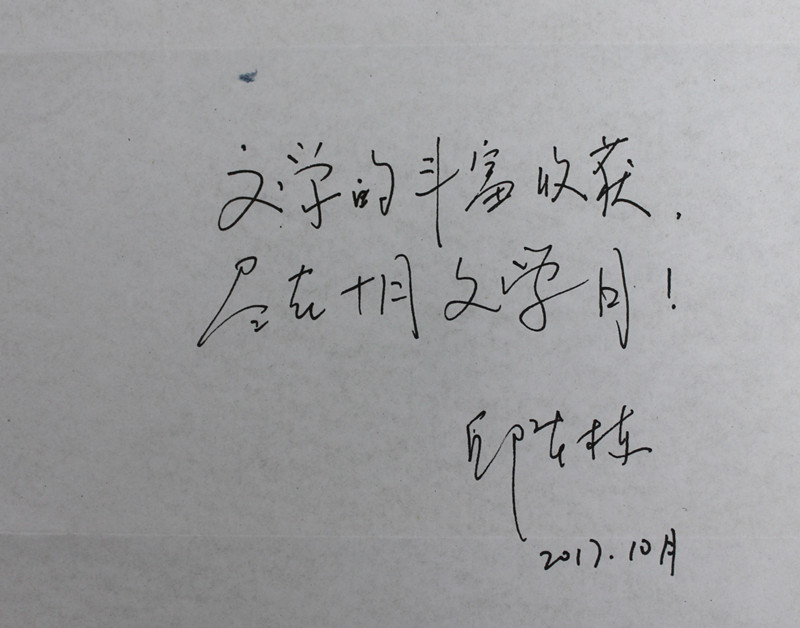 文学的丰富收获，
尽在十月文学月！
邱华栋
2017.10月